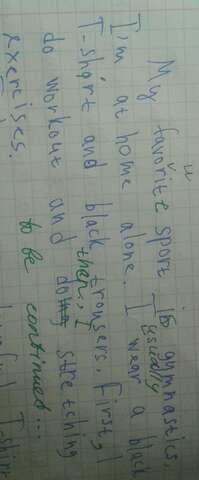 My favorite sport is gymnastics,
u
I'm at home alone. I usually wear a black
T-short and black trousers. First, I
do workout and then, I do stretching
exercises. to be continued...
T-shirt